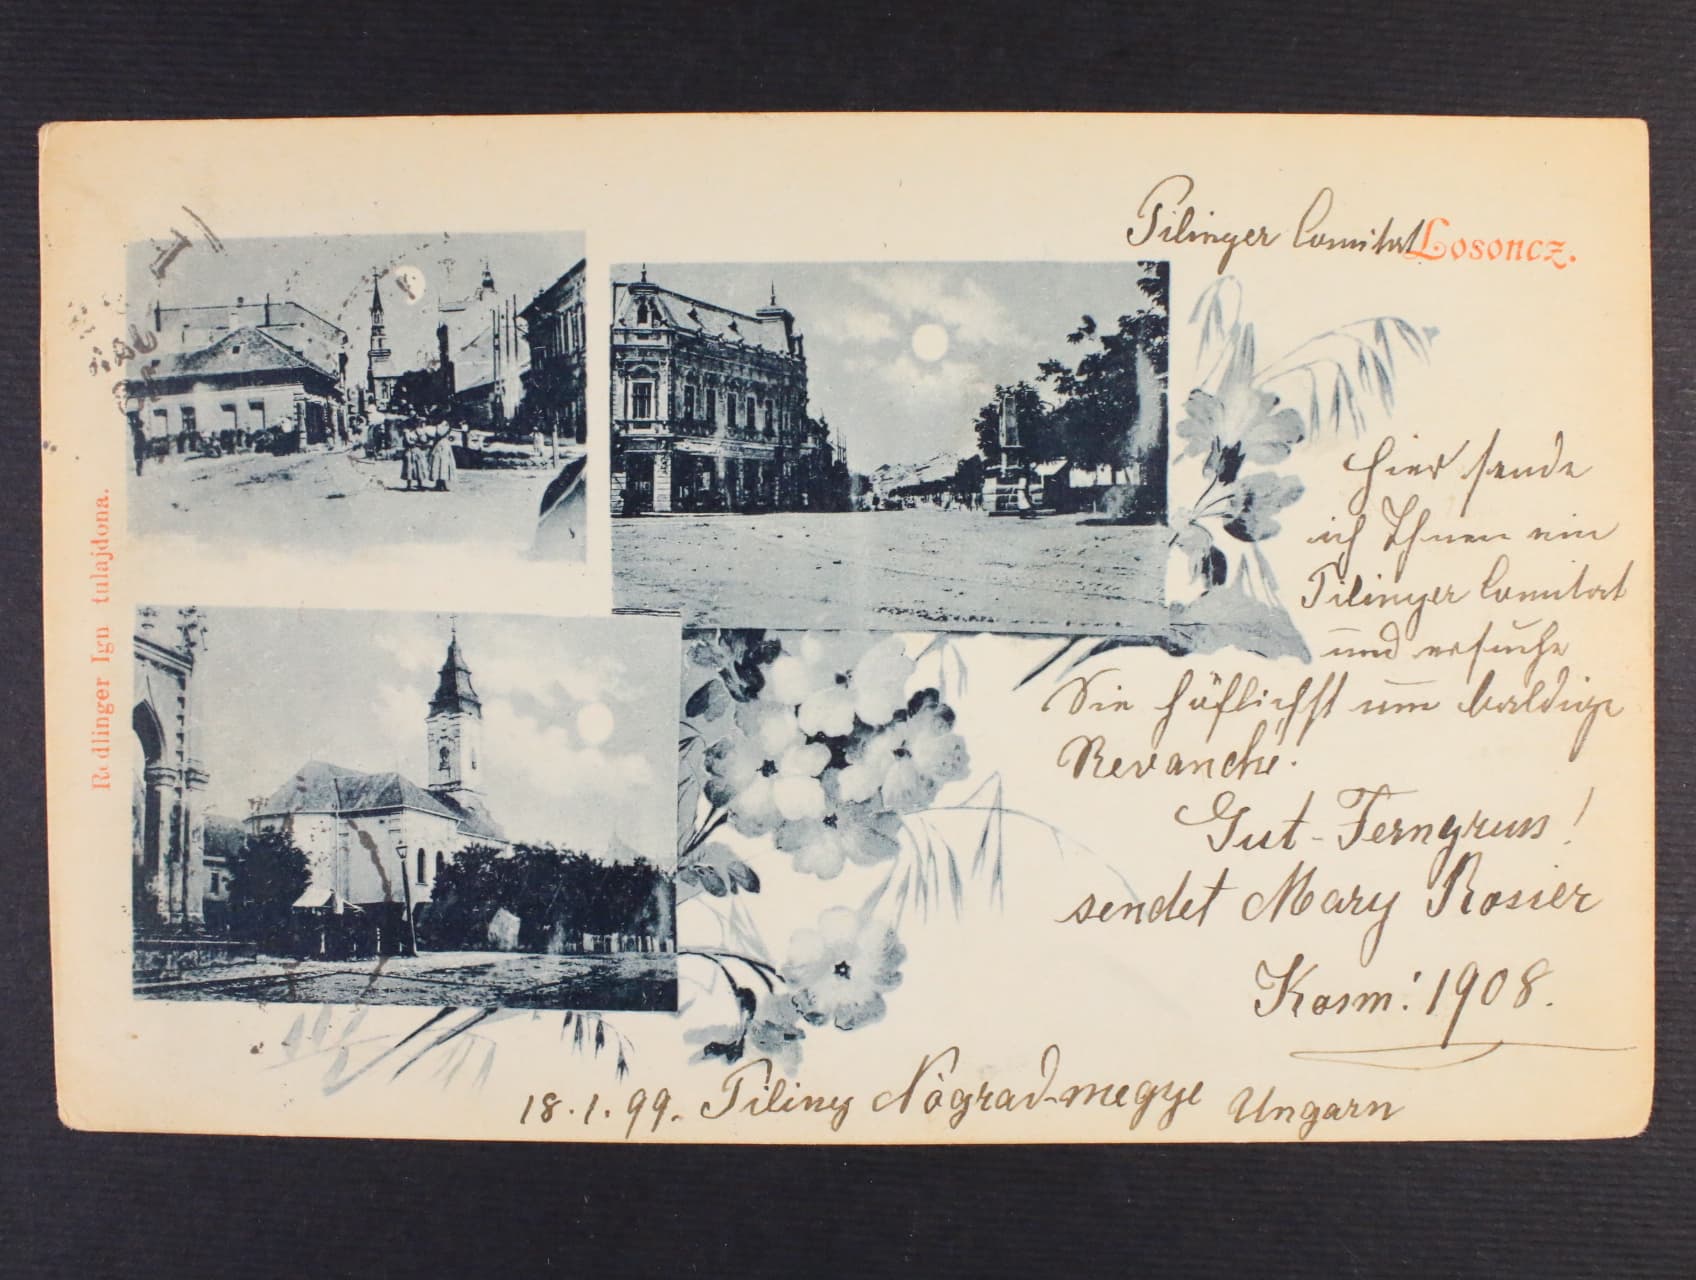 Pilinger Comitat Losoncz.
Hier sende
ich Ihnen ein
Pilinger Comitat
und ersuche
Sie höflichst um baldige
Revanche.
Gut-Ferngruss!
sendet Mary Rosier
Kosm: 1908.
18.1.99. Piliny Nógrad-megye Ungarn
Redlinger Ign tulajdona.